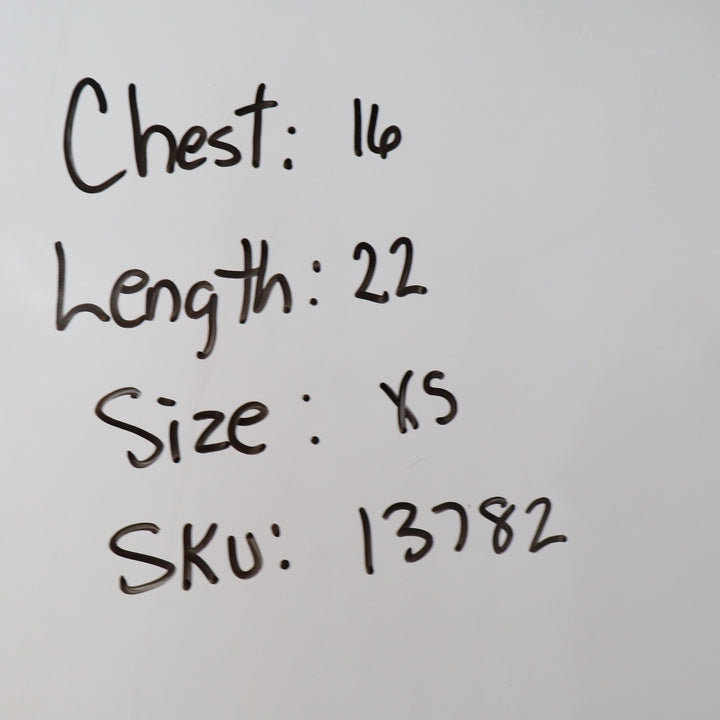 Chest: 16
Length: 22
Size: XS
SKU: 13782